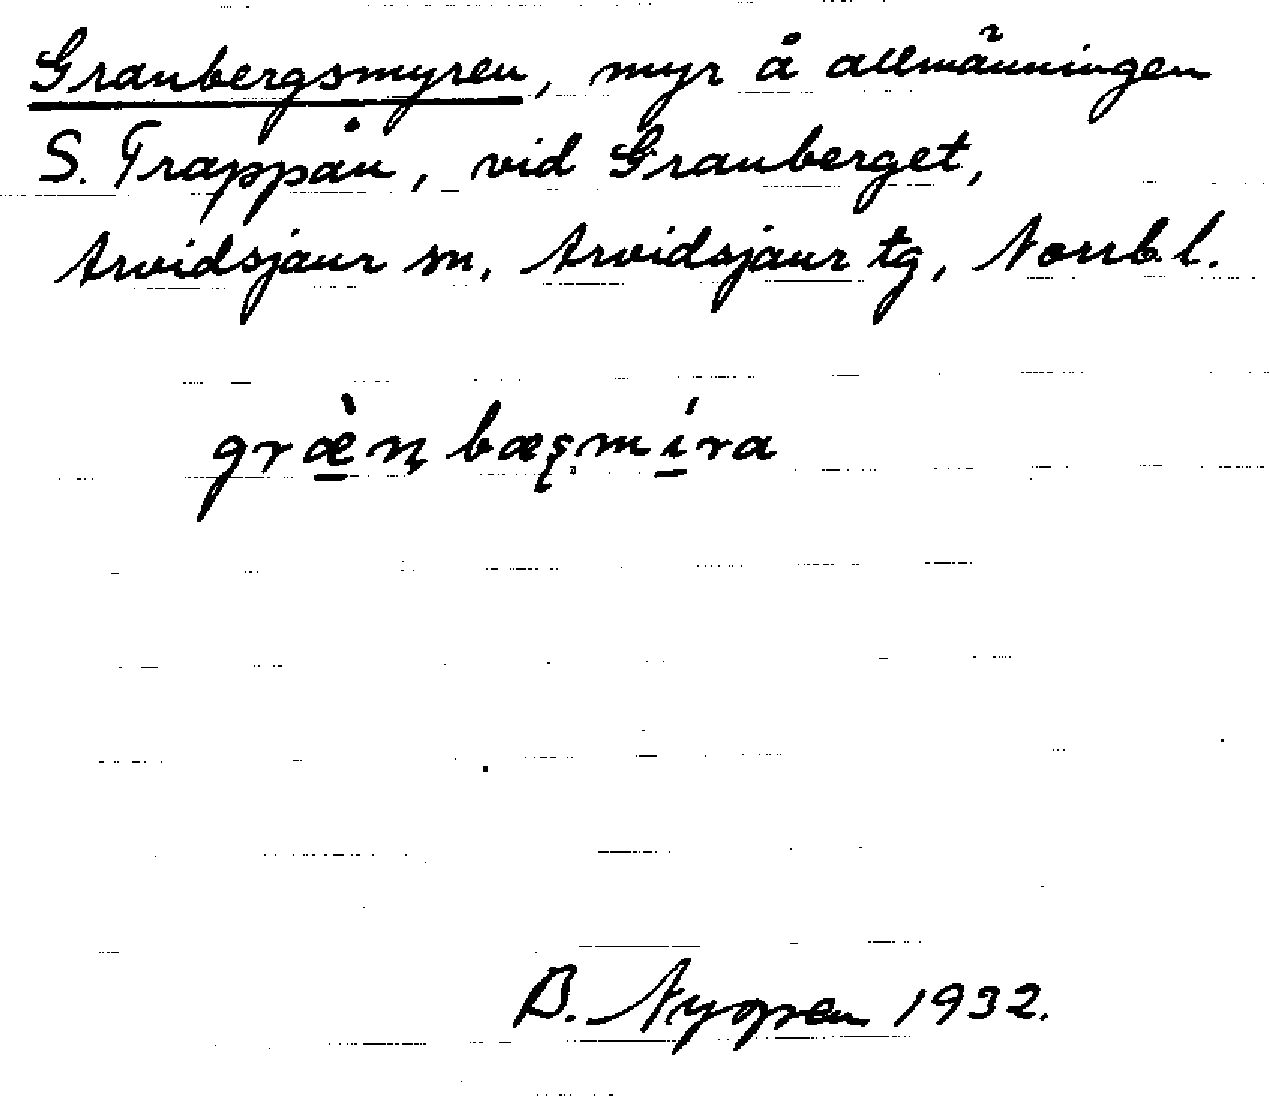 Granbergsmyren, myr å allmänningen
S. Trappån, vid Granberget,
Arvidsjaur sn, Arvidsjaur tg, Norrb. l.
græ̀n bæʂmíra
B. 1932.